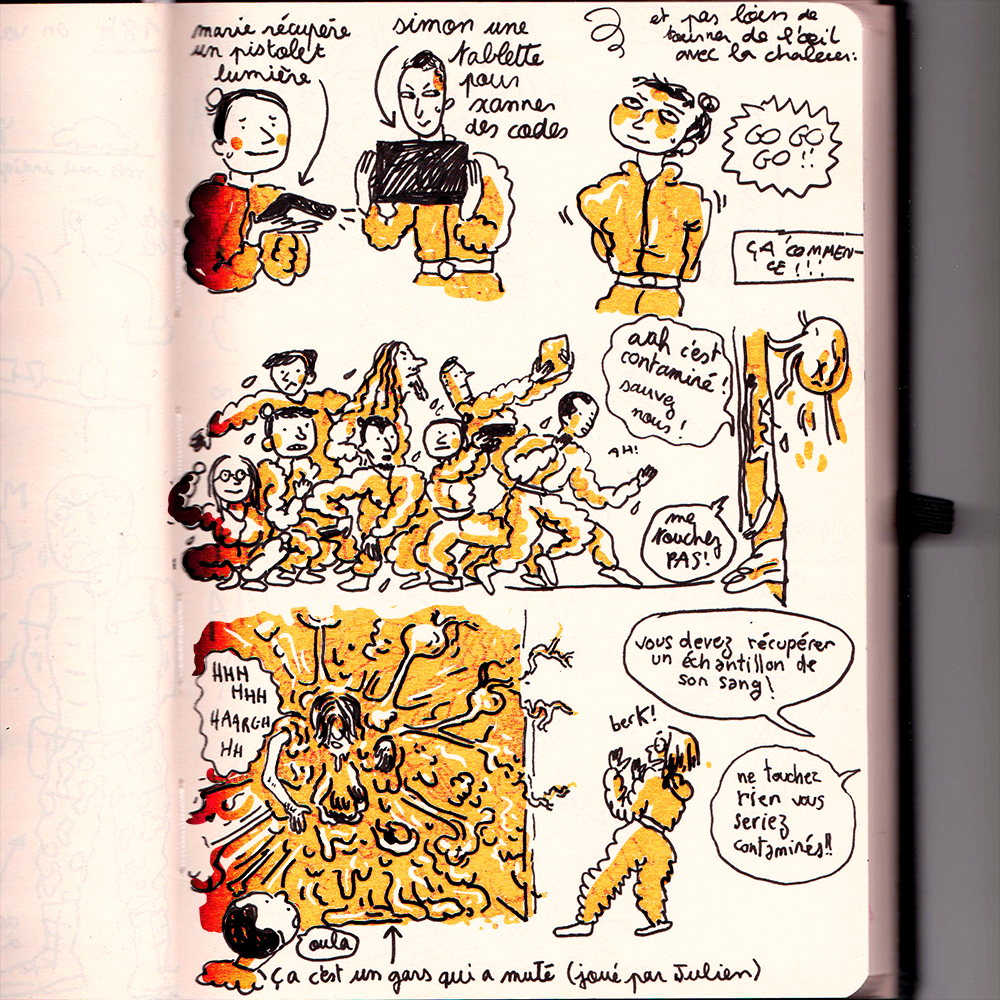 marie récupère
un pistolet
lumière
simon une
tablette
pour
scanner
des codes
et pas loin de
tourner de l'œil
avec la chaleur:
GO GO
GO !!
ÇA COMMEN-
CE !!!
aah c'est
contaminé!
sauvez
nous!
AH!
me
touchez
PAS!
HHH
HHH
HAARGH
HH
vous devez récupérer
un échantillon de
son sang!
berk!
ne touchez
rien vous
seriez
contaminés!!
oula
Ça c'est un gars qui a muté (joué par Julien)